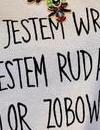 JESTEM WR
JESTEM RUDA
LOR ZOBOW